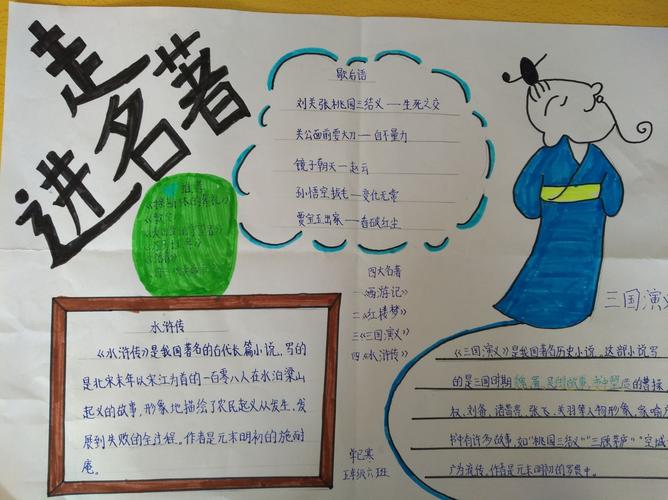 走进名著
歇后语
刘关张桃园三结义——生死之交
关公面前耍大刀——自不量力
镜子朝天——赵云
孙悟空拔毛——变化无常
贾宝玉出家——看破红尘
四大名著
一《西游记》
二《红楼梦》
三《三国演义》
四《水浒传》
水浒传
《水浒传》是我国著名的古代长篇小说。写的
是北宋末年以宋江为首的一百零八人在水泊梁山
起义的故事，形象地描绘了农民起义从发生、发
展到失败的全过程。作者是元末明初的施耐
庵。
三国演义
《三国演义》是我国著名历史小说，这部小说写
的是三国时期魏、蜀、吴的故事，书中塑造的曹操、
权、刘备、诸葛亮、张飞、关羽等人物形象，家喻户
书中有许多故事，如"桃园三结义""三顾茅庐""空城
广为流传。作者是元末明初的罗贯中。
五年级六班